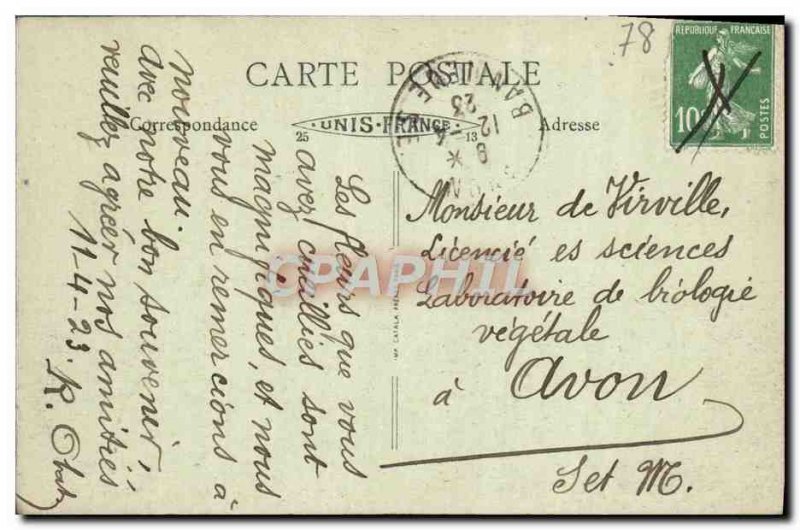 78
REPUBLIQUE FRANÇAISE
10c
POSTES
CARTE POSTALE
Correspondance
UNIS-FRANCE
25
13
Adresse
BANNE
12
23
Les fleurs que vous
avez cueillies sont
magnifiques, et nous
vous en remercions à
nouveau.
avec notre bon souvenir,
veuillez agréer nos amitiés
11-4-23. R.
Monsieur de Virville,
Licencié es sciences
Laboratoire de biologie
végétale
à Avon
Set M.
CPAPHIL